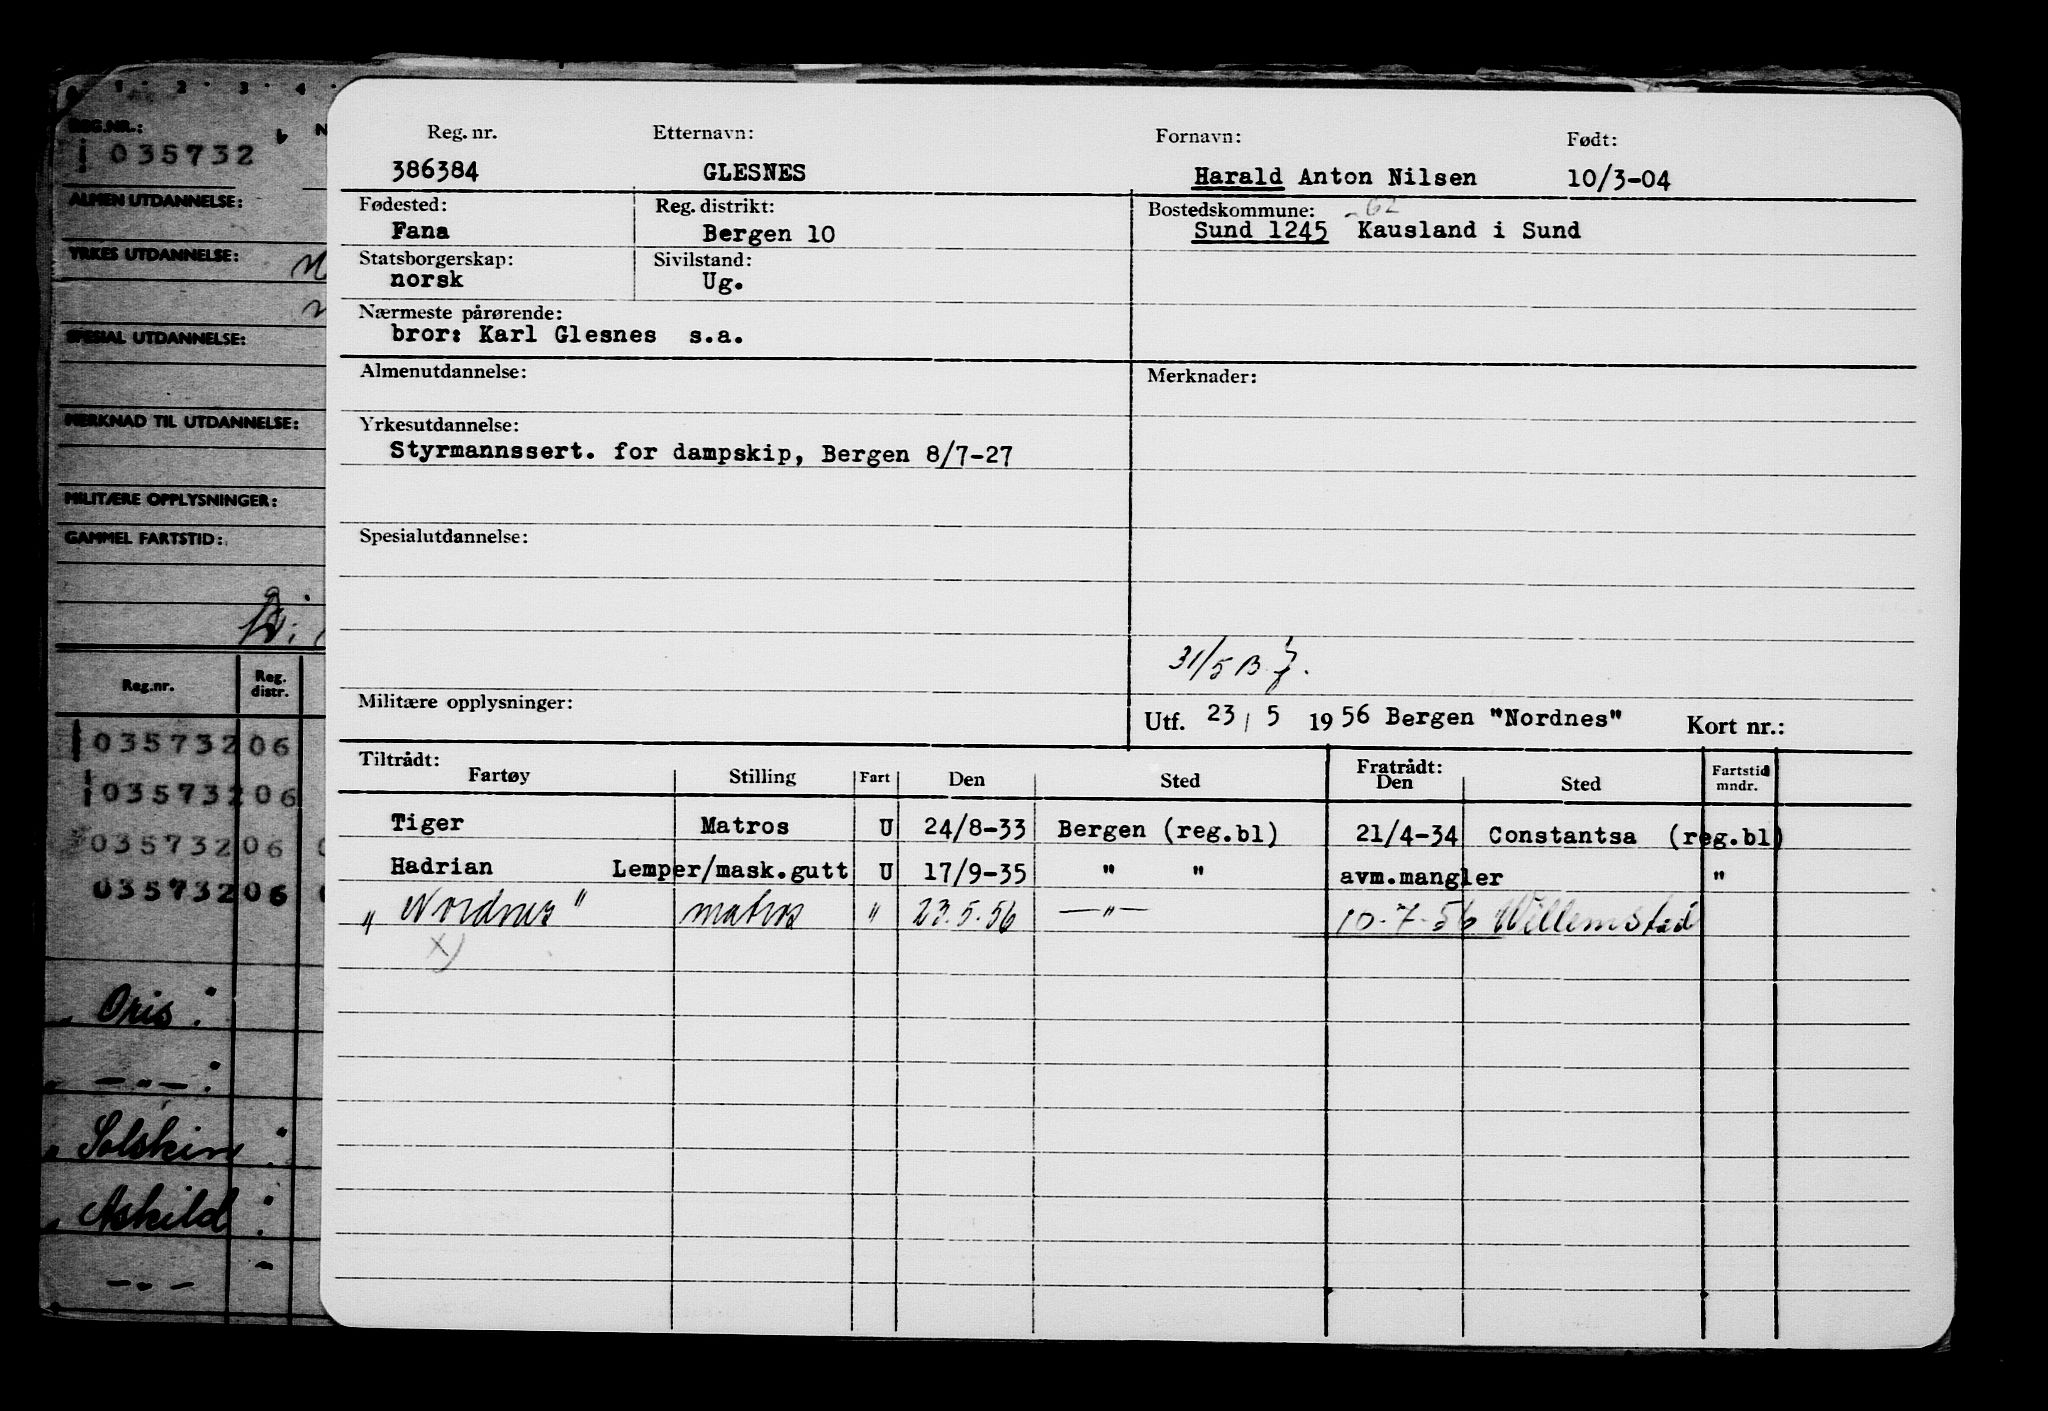 0 1 2 3 4
REG.NR.: N
035732
ALMEN UTDANNELSE:
YRKES UTDANNELSE:
SPESIAL UTDANNELSE:
MERKNAD TIL UTDANNELSE:
MILITÆRE OPPLYSNINGER:
GAMMEL FARTSTID:
Reg.nr. Reg. distr.
035732 06
035732 06
035732 06 0
035732 06 0
" Oris "
" —"— "
" Solskin "
" Askild "
—"— "
Reg. nr. Etternavn: Fornavn: Født:
386384 GLESNES Harald Anton Nilsen 10/3-04
Fødested: Reg. distrikt: Bostedskommune: 62
Fana Bergen 10 Sund 1245 Kausland i Sund
Statsborgerskap: Sivilstand:
norsk Ug.
Nærmeste pårørende:
bror: Karl Glesnes s.a.
Almenutdannelse: Merknader:
Yrkesutdannelse:
Styrmannssert. for dampskip, Bergen 8/7-27
Spesialutdannelse:
31/5 B
Militære opplysninger:
Utf. 23/5 1956 Bergen "Nordnes" Kort nr.:
Tiltrådt: Fratrådt:
Fartøy Stilling Fart Den Sted Den Sted Fartstid mndr.
Tiger Matros U 24/8-33 Bergen (reg.bl) 21/4-34 Constantsa (reg.bl)
Hadrian Lemper/mask.gutt U 17/9-35 " " avm.mangler "
" Nordnes " matros " 23.5.56 —"— 10-7-56 Willemstad
x)